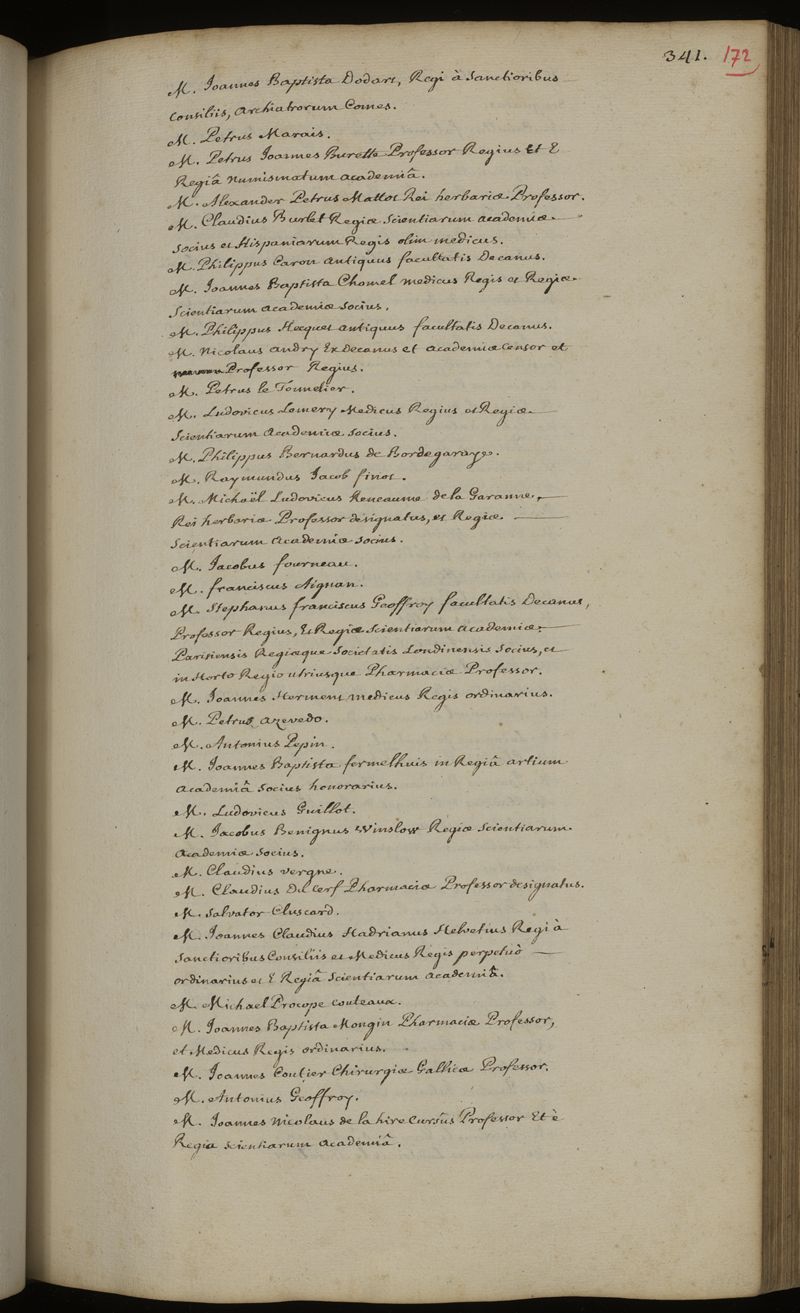 341. 172
M. Joannes Baptista Dodart, Regi à Sanctioribus
Consiliis, Archiatrorum Comes.
M. Petrus Marais.
M. Petrus Joannes Burette Professor Regius Et E
Regiâ numismatum academiâ.
M. Alexander Petrus Mattot Rei herbariæ Professor.
M. Claudius Burlet Regiæ Scientiarum academiæ
Socius et Hispaniarum Regis olim medicus.
M. Philippus Caron antiquus facultatis Decanus.
M. Joannes Baptista Chomel medicus Regis et Regiæ
Scientiarum academiæ Socius.
M. Philippus Hecquet antiquus facultatis Decanus.
M. Nicolaus Andry Ex Decanus et academiæ Censor et
Professor Regius.
M. Petrus le Tonnelier.
M. Ludovicus Lemery Medicus Regius et Regiæ
Scientiarum Academiæ Socius.
M. Philippus Bernardus de Bordegaraye.
M. Raymundus Jacob finot.
M. Michaël Ludovicus Reneaume de la Garanne,
Rei herbariæ Professor designatus, et Regiæ
Scientiarum Academiæ Socius.
M. Jacobus fourneau.
M. franciscus Aignan.
M. Stephanus franciscus Geoffroy facultatis Decanus,
Professor Regius, Et Regiæ Scientiarum academiæ
Parisiensis Regiæque Societatis Londinensis Socius, et
in Horto Regio utriusque Pharmaciæ Professor.
M. Joannes Herment medicus Regis ordinarius.
M. Petrus Azevedo.
M. Antonius Pepin.
M. Joannes Baptista fermelhuis in Regiâ artium
academiâ Socius honorarius.
M. Ludovicus Guillot.
M. Jacobus Benignus Winslow Regiæ Scientiarum
Academiæ Socius.
M. Claudius vergne.
M. Claudius Du cerf Pharmaciæ Professor designatus.
M. Salvator Cluscard.
M. Joannes Claudius Hadrianus Helvetius Regi à
Sanctioribus Consiliis et Medicus Regis perpetuò
ordinarius et E Regiâ Scientiarum academiâ.
M. Michael Procope couteaux.
M. Joannes Baptista Mongin Pharmaciæ Professor,
et Medicus Regis ordinarius.
M. Joannes Coutier Chirurgiæ Gallicæ Professor.
M. Antonius Geoffroy.
M. Joannes Nicolaus de la hire Cursûs Professor Et è
Regia Scientiarum academiâ.